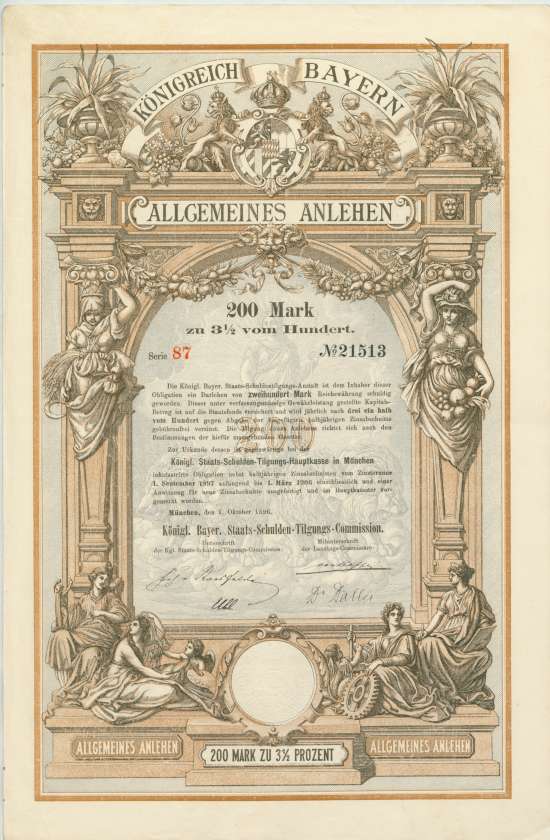 KÖNIGREICH BAYERN
ALLGEMEINES ANLEHEN
200 Mark
zu 3½ vom Hundert.
Serie 87 № 21513
Die Königl. Bayer. Staats-Schuldentilgungs-Anstalt ist dem Inhaber dieser
Obligation ein Darlehen von zweihundert Mark Reichswährung schuldig
geworden. Dieser unter verfassungsmässige Gewährleistung gestellte Kapitals-
Betrag ist auf die Staatsfonds versichert und wird jährlich nach drei ein halb
vom Hundert gegen Abgabe der beigefügten halbjährigen Zinsabschnitte
geldkostenfrei verzinst. Die Tilgung dieses Anlehens richtet sich nach den
Bestimmungen der hiefür massgebenden Gesetze.
Zur Urkunde dessen ist gegenwärtige bei der
Königl. Staats-Schulden-Tilgungs-Hauptkasse in München
Obligation nebst halbjährigen vom Zinstermine
1. September 1897 anfangend bis 1. März 1906 einschliesslich und einer
Anweisung für neue Zinsabschnitte ausgefertigt und im Hauptkataster vor-
gemerkt worden.
München, den 1. Oktober 1896.
Königl. Bayer. Staats-Schulden-Tilgungs-Commission.
der Kgl. Staats-Schulden-Tilgungs-Commission: der Landtags-Commissäre:
ALLGEMEINES ANLEHEN
200 MARK ZU 3½ PROZENT
ALLGEMEINES ANLEHEN